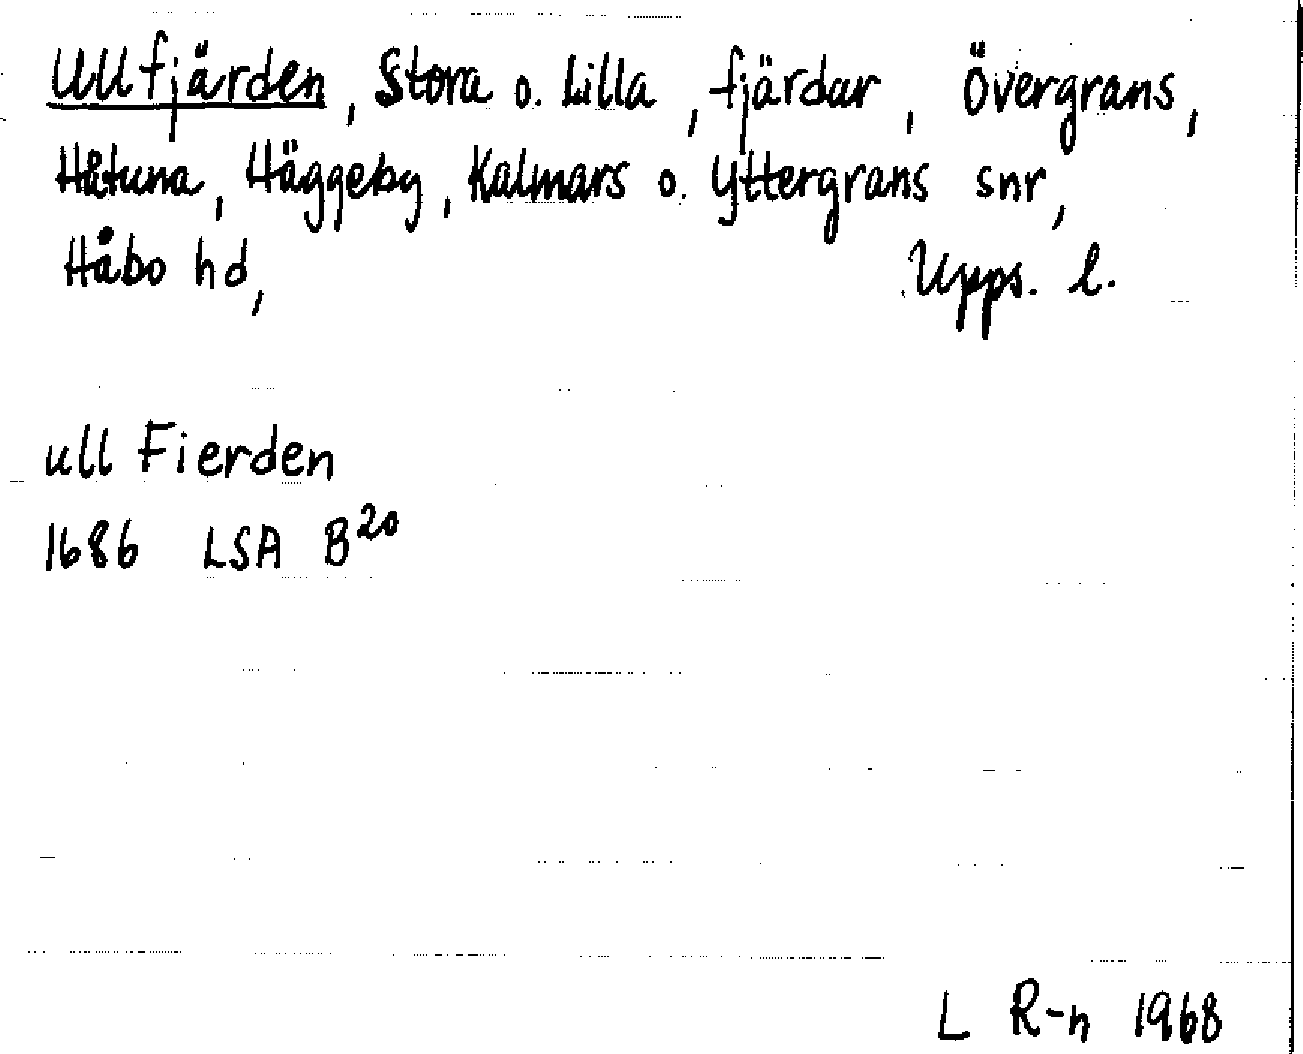 Ullfjärden, Stora o. Lilla, fjärdar, Övergrans,
Håtuna, Häggeby, Kalmars o. Yttergrans snr,
Håbo hd, Upps. l.
ull Fierden
1686 LSA B²⁰
L R-n 1968